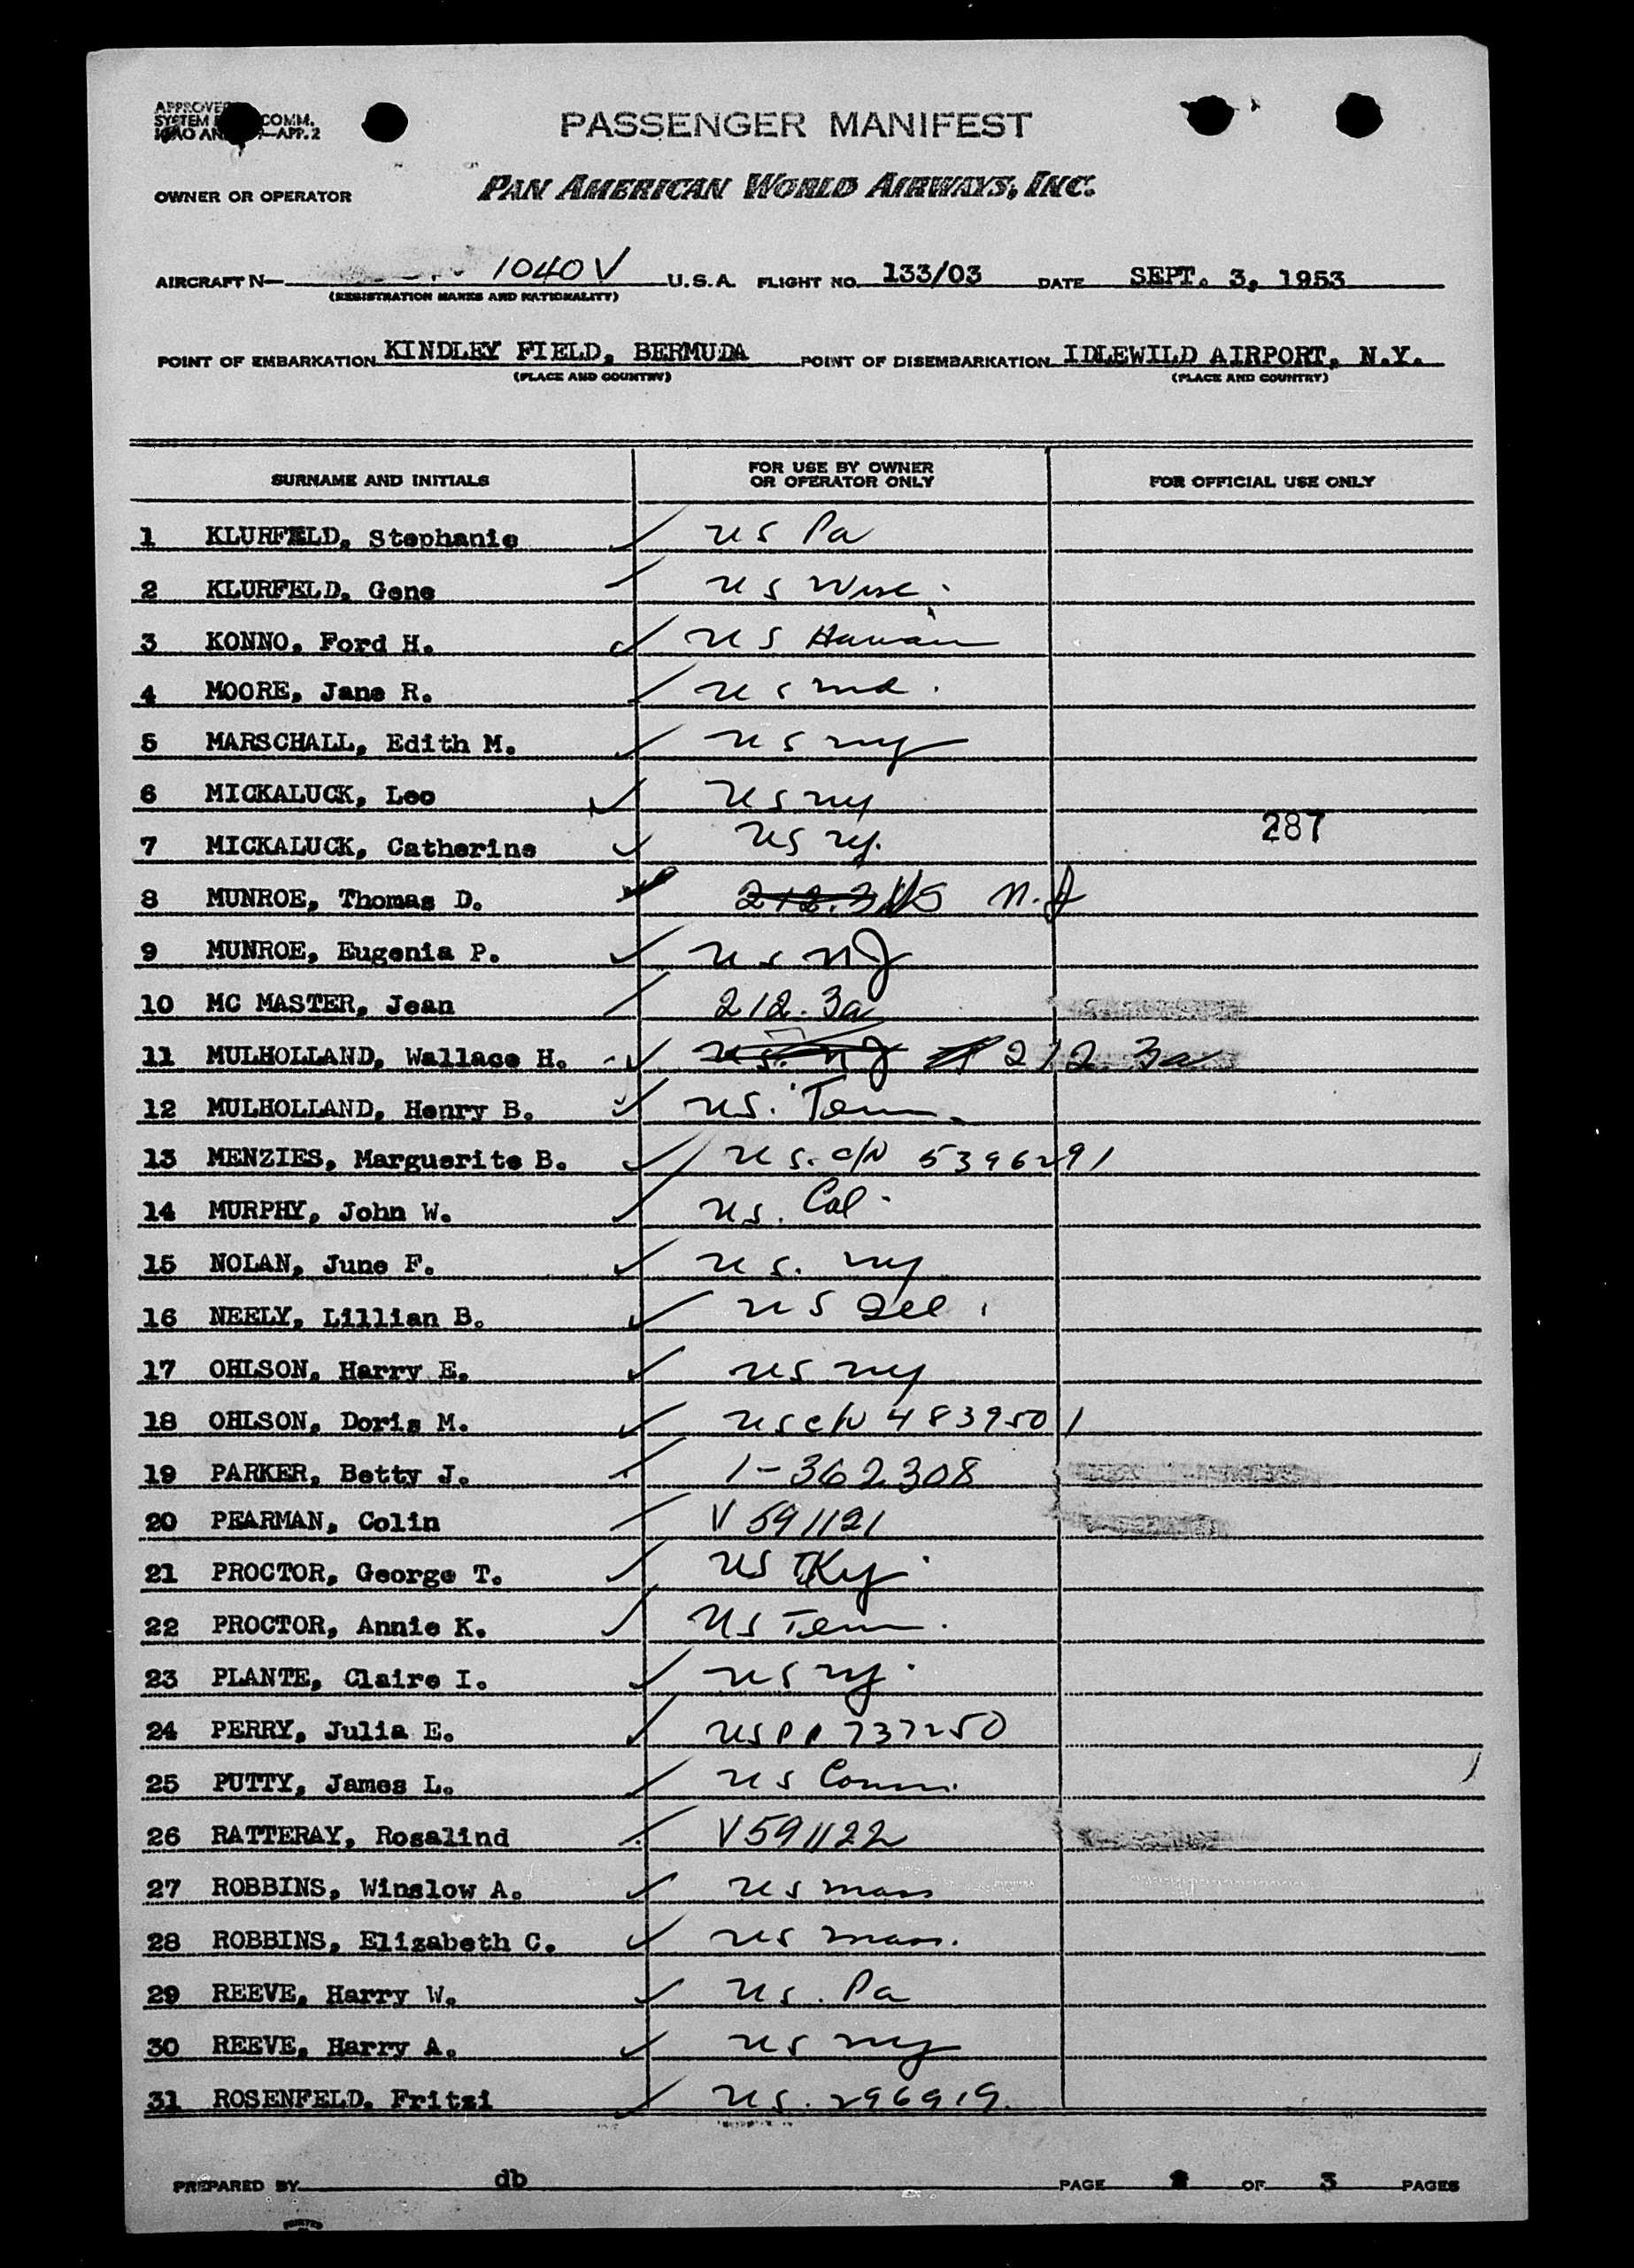 PASSENGER MANIFEST
OWNER OR OPERATOR PAN AMERICAN WORLD AIRWAYS, INC.
AIRCRAFT N— 1040V U.S.A. FLIGHT NO. 133/03 DATE SEPT. 3, 1953
(REGISTRATION MARKS AND NATIONALITY)
POINT OF EMBARKATION KINDLEY FIELD, BERMUDA POINT OF DISEMBARKATION IDLEWILD AIRPORT, N.Y.
(PLACE AND COUNTRY) (PLACE AND COUNTRY)
SURNAME AND INITIALS FOR USE BY OWNER OR OPERATOR ONLY FOR OFFICIAL USE ONLY
1 KLURFELD, Stephanie ✓ US Pa
2 KLURFELD, Gene ✓ US Wisc.
3 KONNO, Ford H. ✓ US Hawaii
4 MOORE, Jane R. ✓ US Md.
5 MARSCHALL, Edith M. ✓ US NY
6 MICKALUCK, Leo ✓ US NY
7 MICKALUCK, Catherine ✓ US NY. 287
8 MUNROE, Thomas D. ✓ 212.3 US N.J
9 MUNROE, Eugenia P. ✓ US NJ
10 MC MASTER, Jean ✓ 212.3a
11 MULHOLLAND, Wallace H. ✓ US. NJ 212.3a
12 MULHOLLAND, Henry B. ✓ US. Tenn.
13 MENZIES, Marguerite B. ✓ US. C/N 5396291
14 MURPHY, John W. ✓ US. Cal.
15 NOLAN, June F. ✓ US. NY
16 NEELY, Lillian B. ✓ US Ill.
17 OHLSON, Harry E. ✓ US NY
18 OHLSON, Doris M. ✓ US C/N 4839501
19 PARKER, Betty J. ✓ 1-362308
20 PEARMAN, Colin ✓ V591121
21 PROCTOR, George T. ✓ US Ky.
22 PROCTOR, Annie K. ✓ US Tenn.
23 PLANTE, Claire I. ✓ US NY.
24 PERRY, Julia E. ✓ US PP 737250
25 PUTTY, James L. ✓ US Conn.
26 RATTERAY, Rosalind ✓ V591122
27 ROBBINS, Winslow A. ✓ US Mass
28 ROBBINS, Elizabeth C. ✓ US Mass.
29 REEVE, Harry W. ✓ US. Pa
30 REEVE, Harry A. ✓ US NY
31 ROSENFELD, Fritzi ✓ US. 296919.
PREPARED BY db PAGE 2 OF 3 PAGES